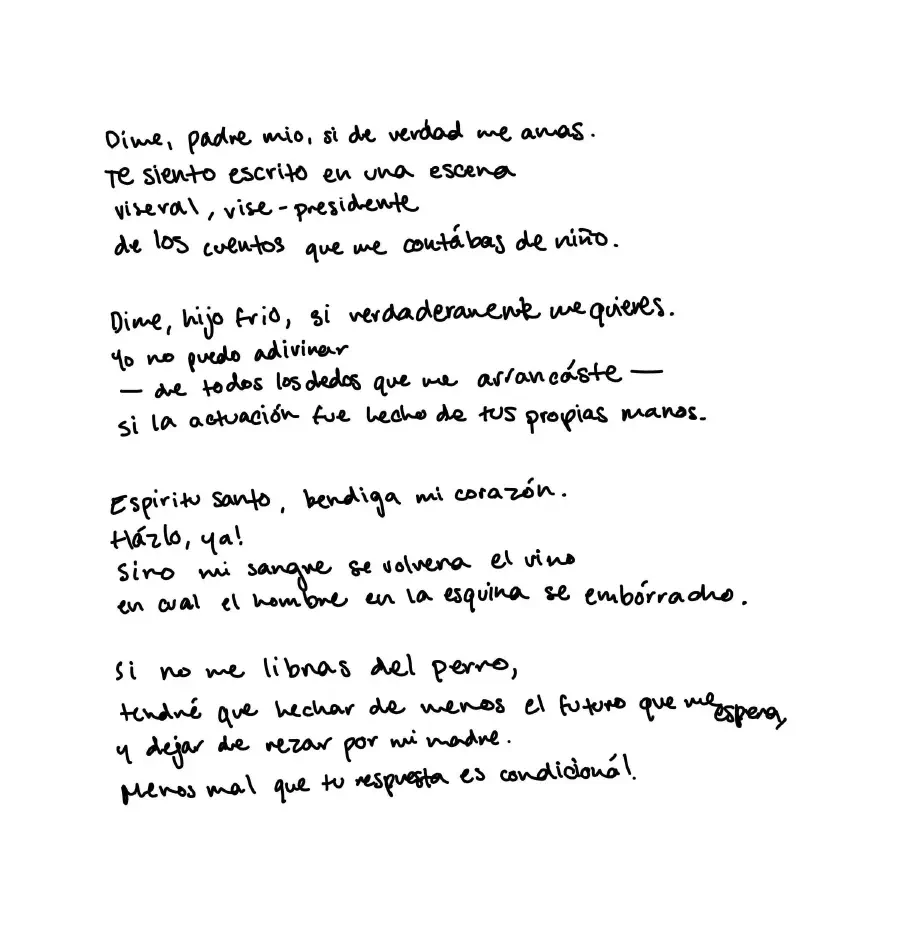 Dime, padre mio, si de verdad me amas.
Te siento escrito en una escena
viseral, vise-presidente
de los cuentos que me contábas de niño.
Dime, hijo frio, si verdaderamente me quieres.
Yo no puedo adivinar
— de todos los dedos que me arrancáste —
si la actuación fue hecho de tus propias manos.
Espiritu santo, bendiga mi corazón.
Házlo, ya!
Sino mi sangre se volvera el vino
en cual el hombre en la esquina se embórracho.
Si no me libras del perro,
tendré que hechar de menos el futuro que me espera,
y dejar de rezar por mi madre.
Menos mal que tu respuesta es condicionál.